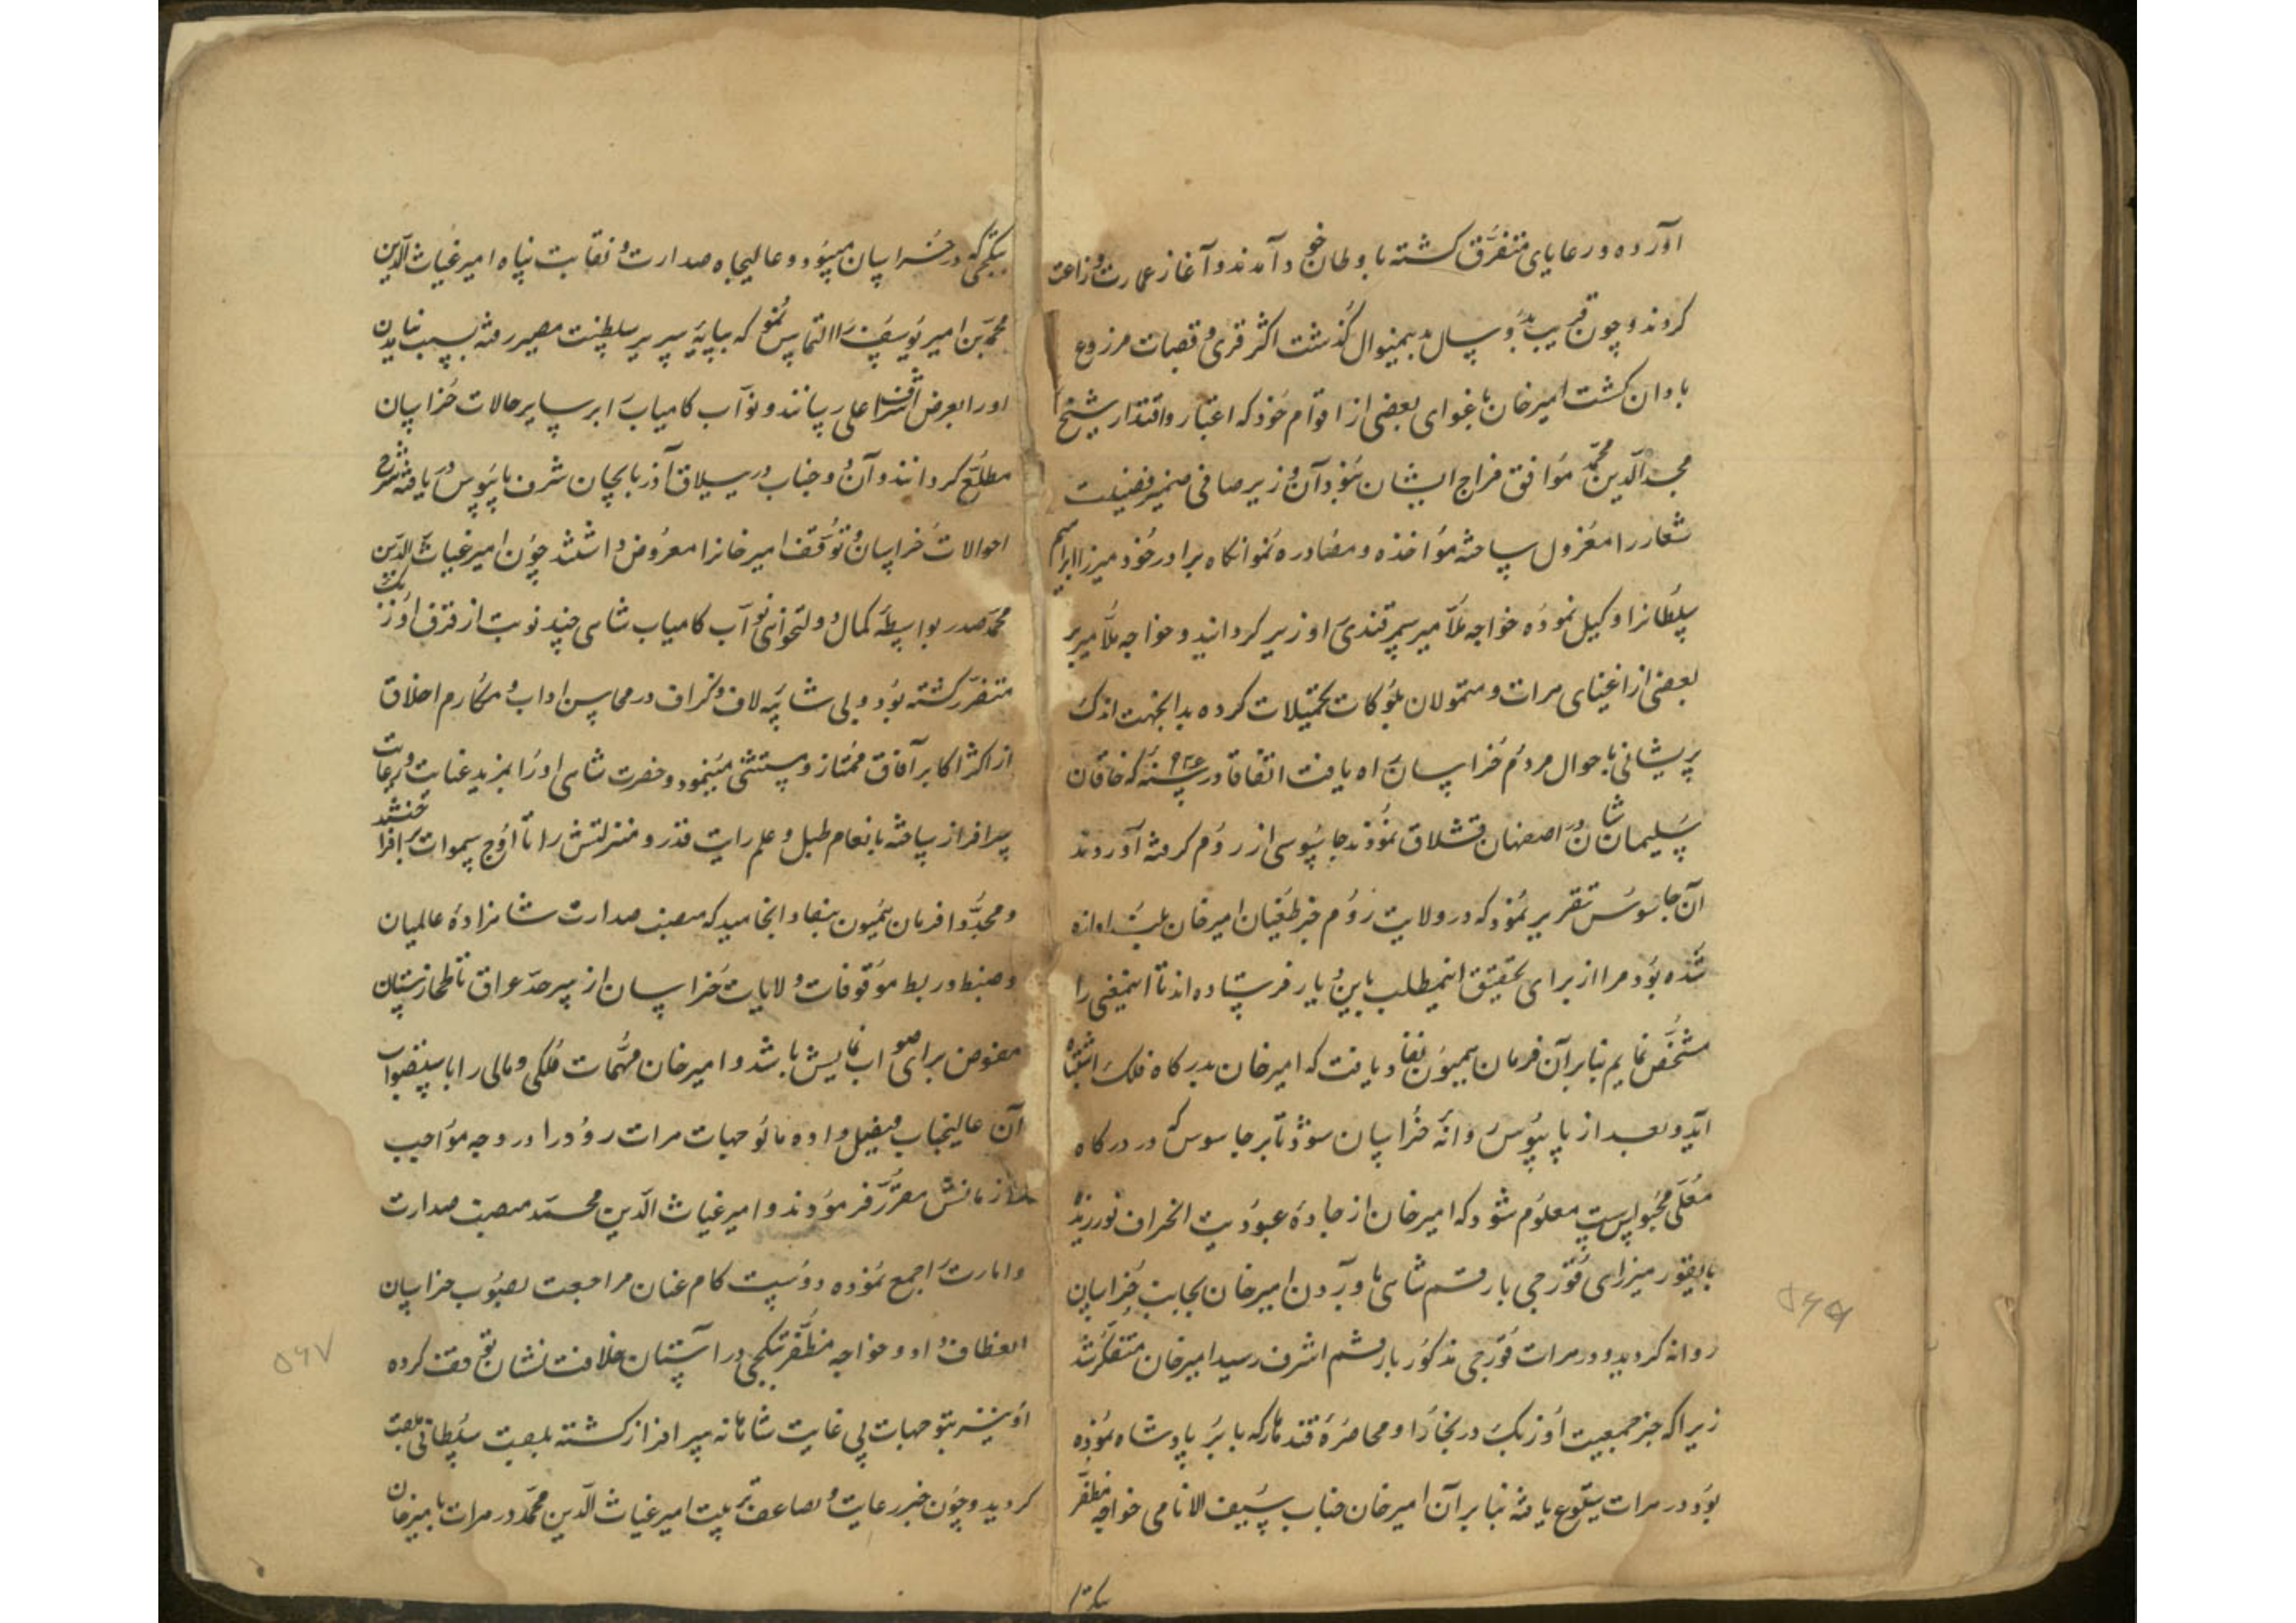 آورده و رعایای متفرق گشته باوطان خود آمدند و آغاز عمارت و زراعت
کردند و چون قریب بدو سال بدینمنوال گذشت اکثر قری و قصبات مزروع
بادان گشت امیرخان باغوای بعضی از اقوام خود که اعتبار و اقتدار شیخ
مجدالدین محمد موافق مزاج ایشان نبود آن وزیر صافی ضمیر فضیلت
شعار را معزول ساخته مؤاخذه و مصادره نمود آنکاه برادر خود میرزا ابراهیم
سلطانرا وکیل نموده خواجه ملا میر سمرقندی را وزیر کردانید و خواجه ملا میر بر
بعضی از اغنیای هرات و متمولان بلوکات تحمیلات کرده بدانجهت اندک
پریشانی باحوال مردم خراسان راه یافت اتفاقا در سنه که خاقان
سلیمان شان در اصفهان قشلاق نمودند جاسوسی از روم گرفته آوردند
آن جاسوس تقریر نمود که در ولایت روم خبر طغیان امیرخان بلند اوازه
شده بود مرا از برای تحقیق اینمطلب باین دیار فرستاده اند تا اینمعنی را
مشخص نمایم بنابرآن فرمان همیون نفاذ یافت که امیرخان بدرکاه فلک اشتباه
آید و بعد از پایبوس روانه خراسان شود تا بر جاسوس که در درکاه
معلی محبوس است معلوم شود که امیرخان از جادهٔ عبودیت انحراف نورزیده
بایقور میرزای قورچی با رقم شاهی باوردن امیرخان بجانب خراسان
روانه کردید و در هرات قورچی مذکور با رقم اشرف رسید امیرخان متفکر شد
زیرا که خبر جمعیت اوزبک در بخارا و محاصرهٔ قندهار که بابر پادشاه نموده
بود در هرات شیوع یافته بنابرآن امیرخان جناب سیف الانامی خواجه مظفر
بتکجی که در خراسان میبود و عالیجاه صدارت و نقابت پناه امیر غیاث الدین
محمد بن امیر یوسف را التماس نمود که بپایهٔ سریر سلطنت مصیر رفته سبب نیامدن
او را بعرض اشرف اعلی رسانند و نواب کامیاب را بر سایر حالات خراسان
مطلع کردانند و آن دو جناب در ییلاق آذربایجان شرف پایبوس دریافته شرح
احوالات خراسان و توقف امیرخانرا معروض داشتند چون امیر غیاث الدین
محمد صدر بواسطه کمال دولتخواهی نواب کامیاب شاهی چند نوبت از فرق اوزبک
متضرر گشته بود و بی شائبه لاف و گزاف در محاسن اداب و مکارم اخلاق
از اکثر اکابر آفاق ممتاز و مستثنی مینمود و حضرت شاهی او را بمزید عنایت و رعایت
سرافراز ساخته بانعام طبل و علم رایت قدر و منزلتش را تا اوج سموات برافراختند
و مجددا فرمان همیون بنفاد انجامید که منصب صدارت شاهزادهٔ عالمیان
و ضبط و ربط موقوفات ولایات خراسان از سرحد عراق تا طخارستان
مفوض برای صواب نمایش باشد و امیرخان مهمات ملکی و مالی را باستصواب
آن عالیجناب فیصل داده مالوجهات هرات رود را در وجه مواجب
ملازمانش مقرر فرمودند و امیر غیاث الدین محمد منصب صدارت
و امارت را جمع نموده دوست کام عنان مراجعت بصوب خراسان
انعطاف داد و خواجه مظفر بتکجی در آستان خلافت نشان توقف کرده
او نیز بتوجهات بی غایت شاهانه سرافراز گشته بلقب سلطانی ملقب
کردید و چون خبر رعایت و تضاعف تربیت امیر غیاث الدین محمد در هرات بامیرخان
بتکجی
۵۶۷